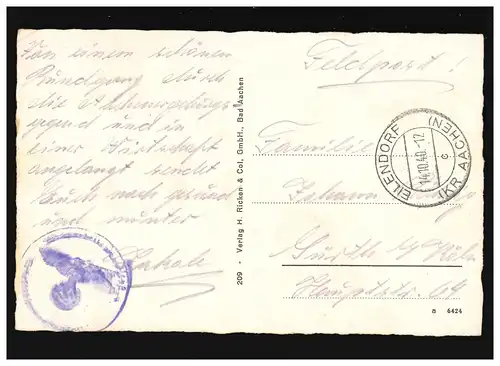 Von einem schönen
Rundgang durch
die
gegend und in
einer Wirtschaft
angelangt sendet
Euch noch gesund
und munter
209 - Verlag H. Ricken & Col. GmbH., Bad Aachen
Feldpost!
EILENDORF
14.10.40.-12
c
(KR AACHEN)
Familie
Johann
Sürth b/ Köln
Hauptstr. 64
8 6424